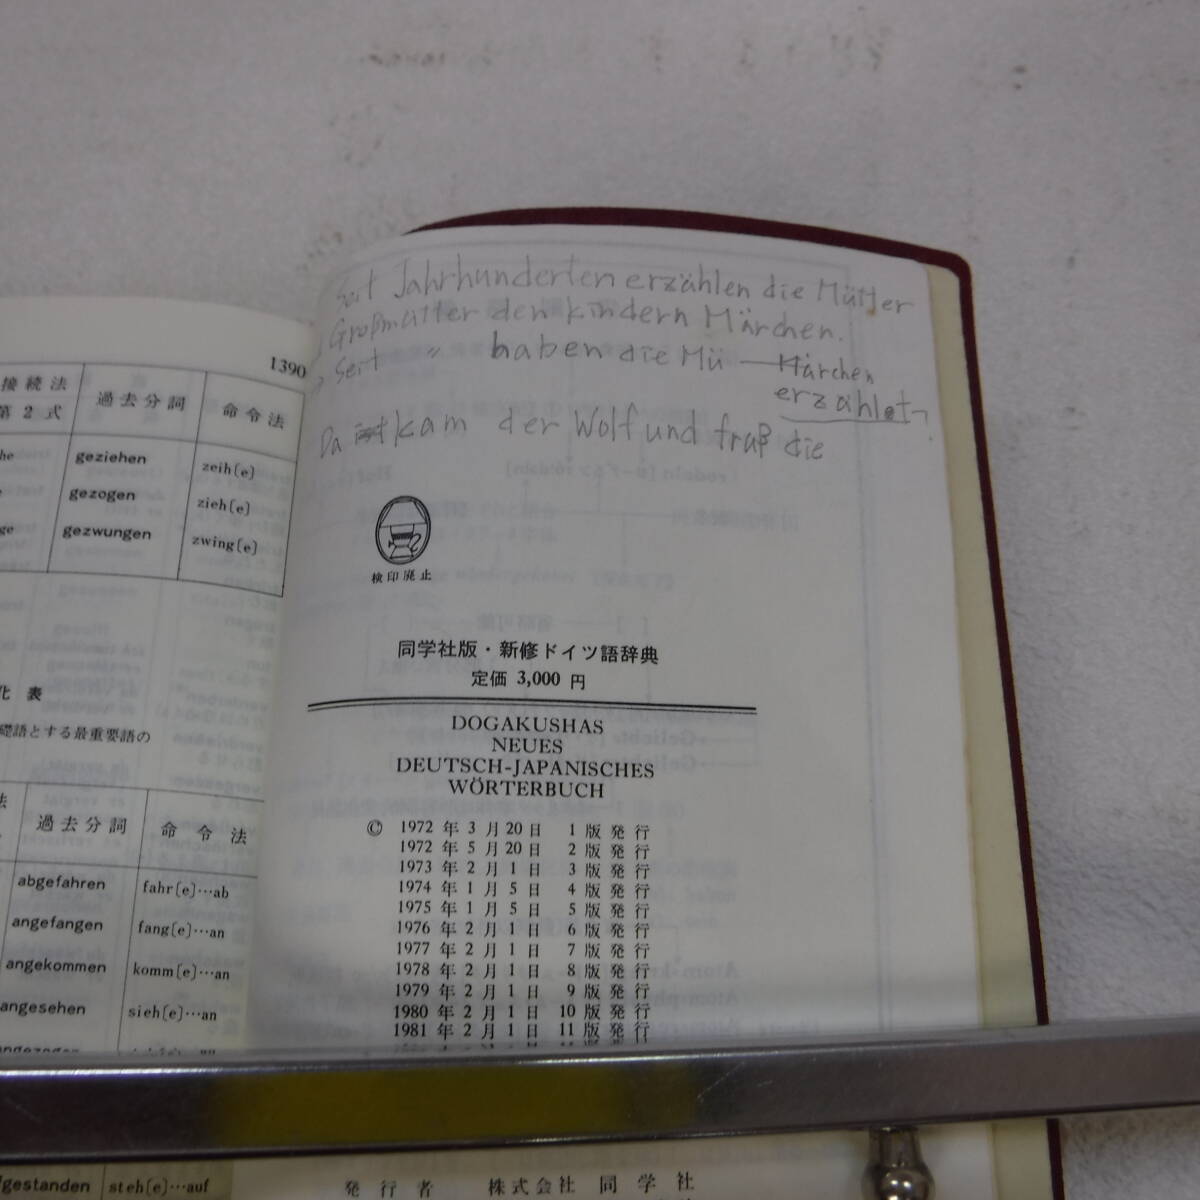 1390
接続法 過去分詞 命令法
第2式
he geziehen zeih〔e〕
gezogen zieh〔e〕
ge gezwungen zwing〔e〕
化 表
礎語とする最重要語の
法 過去分詞 命令法
abgefahren fahr〔e〕…ab
angefangen fang〔e〕…an
angekommen komm〔e〕…an
angesehen sieh〔e〕…an
angezogen
gestanden steh〔e〕…auf
Seit Jahrhunderten erzählen die Mütter
Großmütter den Kindern Märchen.
Seit 〃 haben die Mü — Märchen
erzählet
Da kam der Wolf und fraß die
検印廃止
同学社版・新修ドイツ語辞典
定価 3,000 円
DOGAKUSHAS
NEUES
DEUTSCH-JAPANISCHES
WÖRTERBUCH
© 1972 年 3 月 20 日 1 版 発 行
1972 年 5 月 20 日 2 版 発 行
1973 年 2 月 1 日 3 版 発 行
1974 年 1 月 5 日 4 版 発 行
1975 年 1 月 5 日 5 版 発 行
1976 年 2 月 1 日 6 版 発 行
1977 年 2 月 1 日 7 版 発 行
1978 年 2 月 1 日 8 版 発 行
1979 年 2 月 1 日 9 版 発 行
1980 年 2 月 1 日 10 版 発 行
1981 年 2 月 1 日 11 版 発 行
発 行 者 株式会社 同 学 社